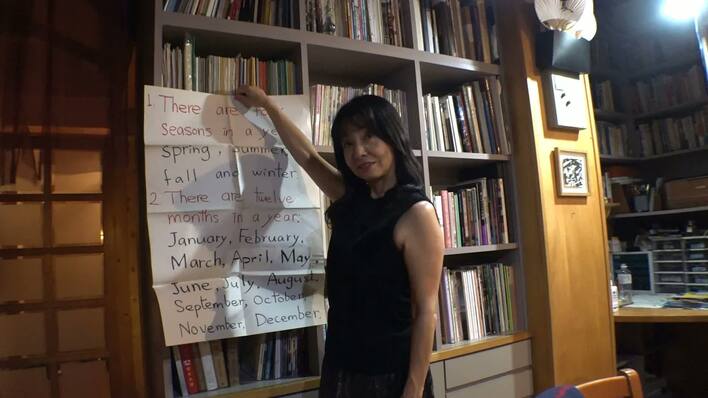 1 There are four
seasons in a year
spring, summer,
fall and winter.
2 There are twelve
months in a year.
January, February,
March, April, May,
June, July, August,
September, October,
November, December.